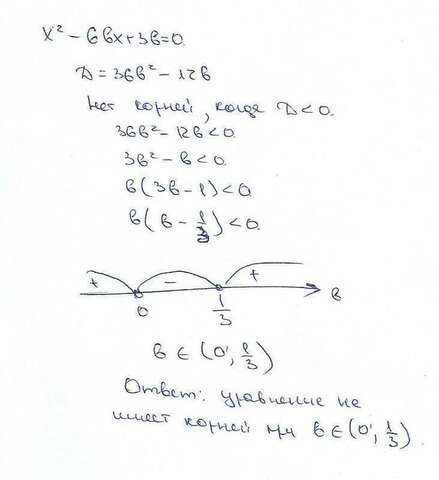 x² - 6вx + 3в = 0.
Д = 36в² - 12в
Нет корней, когда Д < 0.
36в² - 12в < 0.
3в² - в < 0.
в(3в - 1) < 0
в(в - 1/3) < 0.
+ - +
0 1/3 в
в ∈ (0; 1/3)
Ответ: уравнение не
имеет корней при в ∈ (0; 1/3).